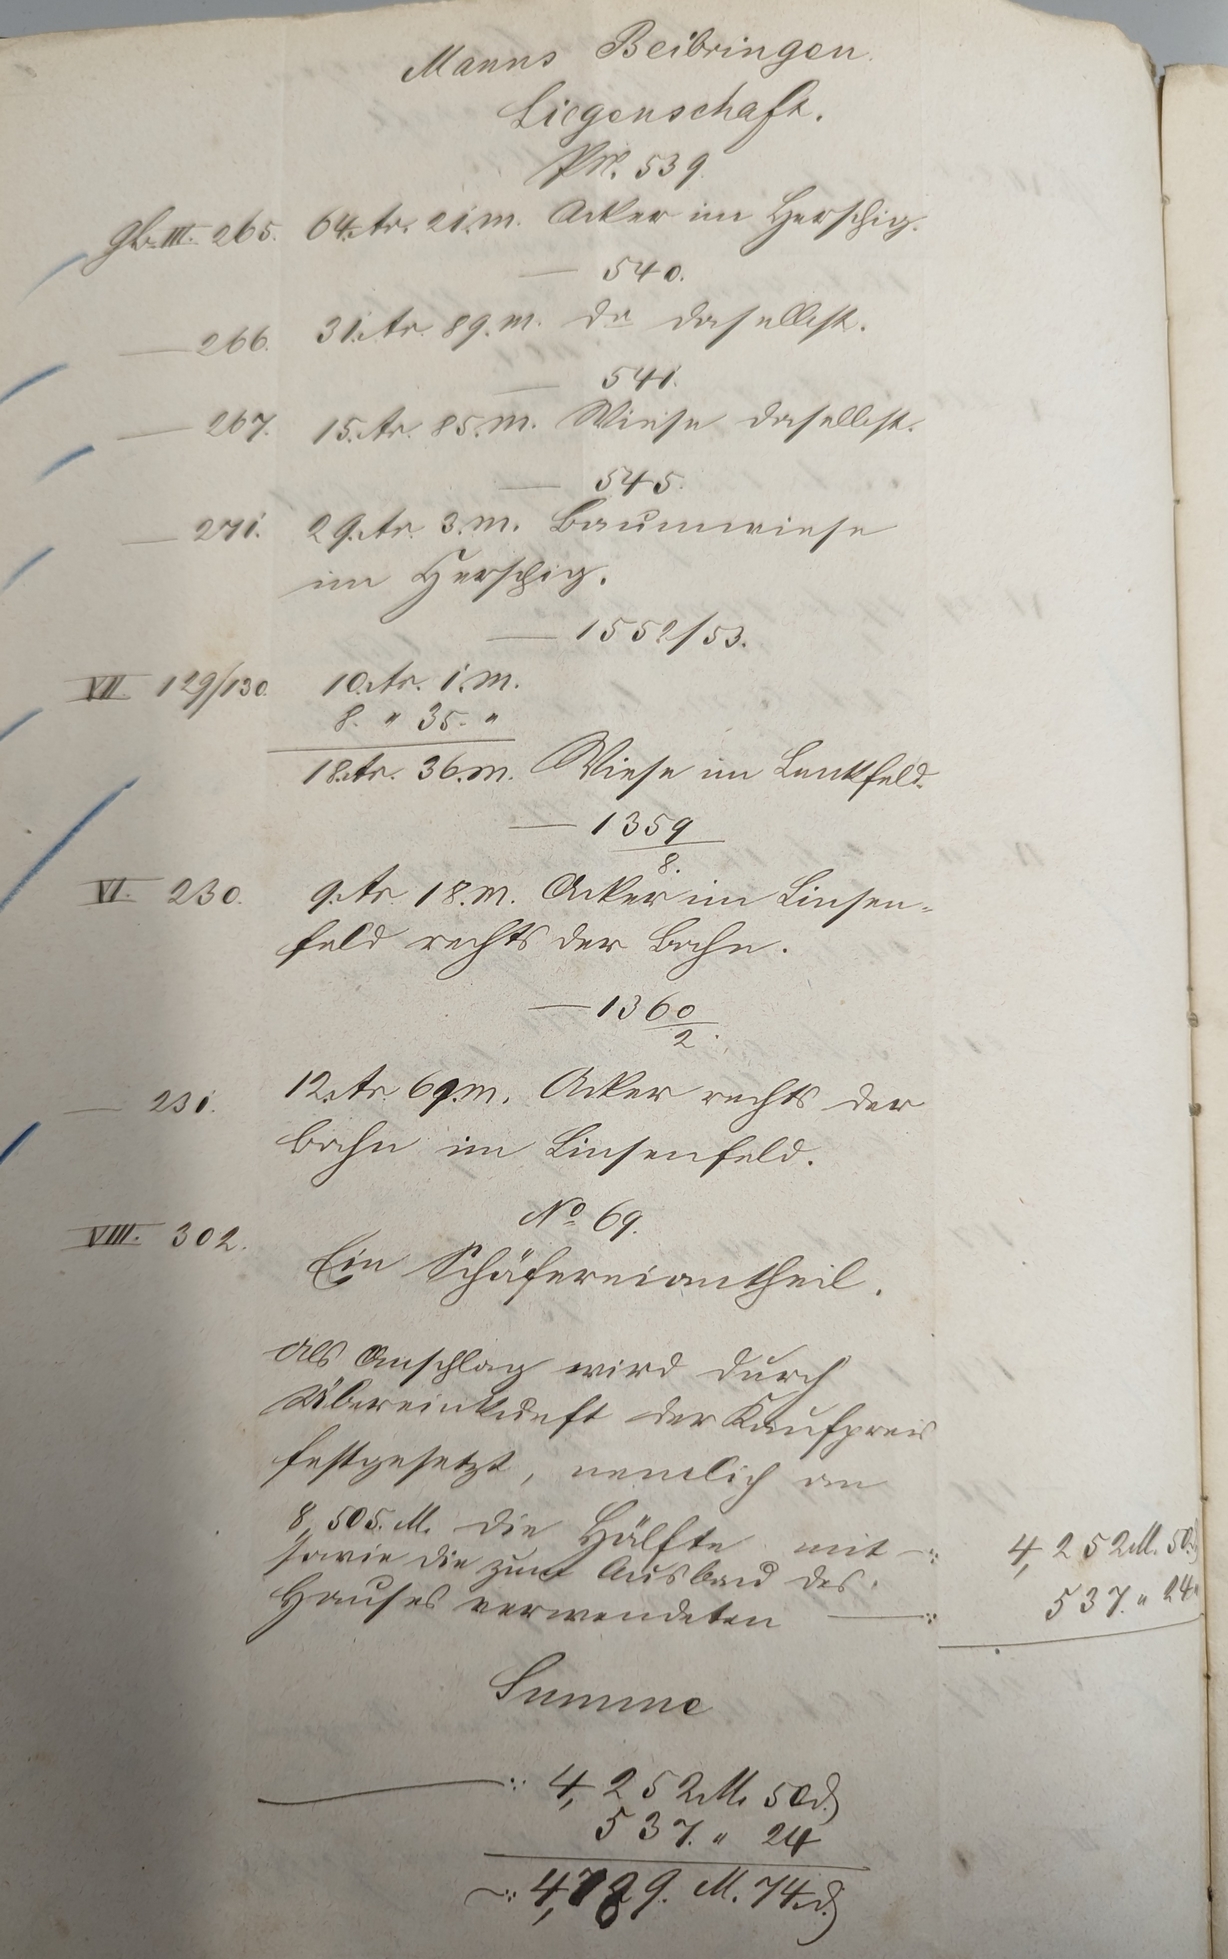 Manns Beibringen.
Liegenschaft.
PN. 539.
Gb. III. 265. 64. Ar. 21. m. Acker im Herschig.
— 540.
— 266. 31. Ar. 89. m. do daselbst.
— 541.
— 267. 15. Ar. 85. m. Wiese daselbst.
— 545.
— 271. 29. Ar. 3. m. Baumwiese
im Herschig.
— 1552/53.
VII. 129/130. 10. Ar. 1. m.
8. " 35. "
18. Ar. 36. m. Wiese im Lenkfeld.
— 1359/8.
VI. 230. 9. Ar. 18. m. Acker im Linsen-
feld rechts der Bahn.
— 1360/2.
— 231. 12. Ar. 69. m. Acker rechts der
Bahn im Linsenfeld.
No 69.
VIII. 302. Ein Schäfereiantheil.
Als Anschlag wird durch
Übereinkunft der Kaufpreis
festgesetzt, nemlich an
8,505. M. die Hälfte mit —: 4,252 M. 50 d
sowie die zum Ausbau des
Hauses verwendeten —: 537. " 24 "
Summe
—: 4,252 M. 50 d.
537. " 24
—: 4,789. M. 74. d.